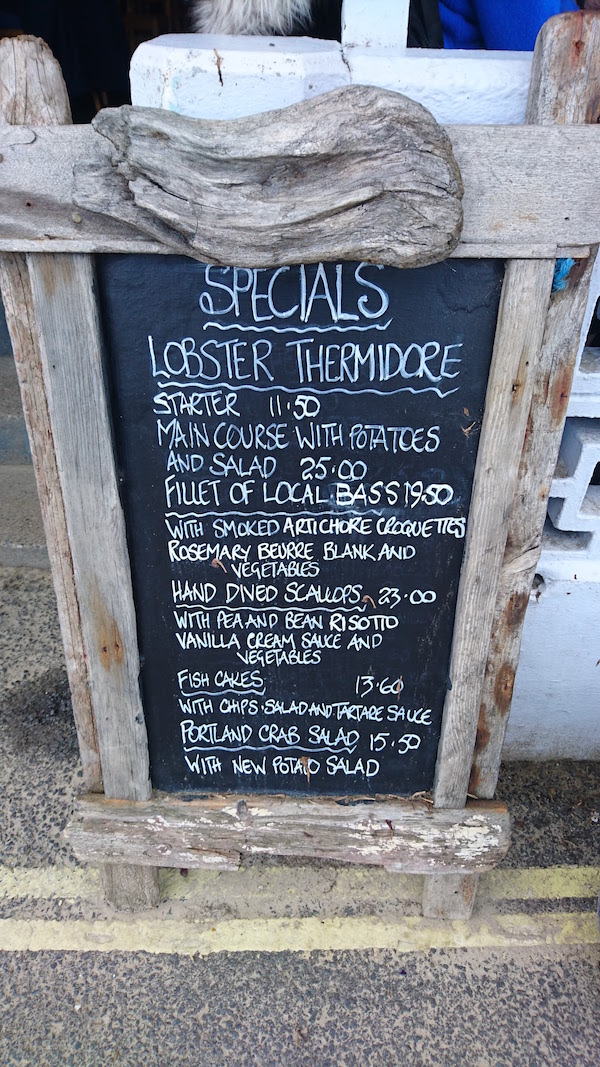 SPECIALS
LOBSTER THERMIDORE
STARTER 11.50
MAIN COURSE WITH POTATOES
AND SALAD 25.00
FILLET OF LOCAL BASS 19.50
WITH SMOKED ARTICHORE CROQUETTES
ROSEMARY BEURRE BLANK AND
VEGETABLES
HAND DIVED SCALLOPS 23.00
WITH PEA AND BEAN RISOTTO
VANILLA CREAM SAUCE AND
VEGETABLES
FISH CAKES 13.60
WITH CHIPS. SALAD AND TARTARE SAUCE
PORTLAND CRAB SALAD 15.50
WITH NEW POTATO SALAD